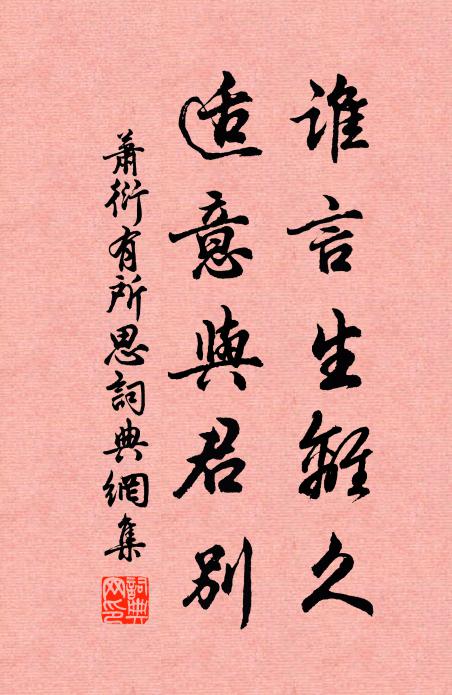 誰言生離久
适意與君別
蕭衍有所思詞典網集
詞典网印